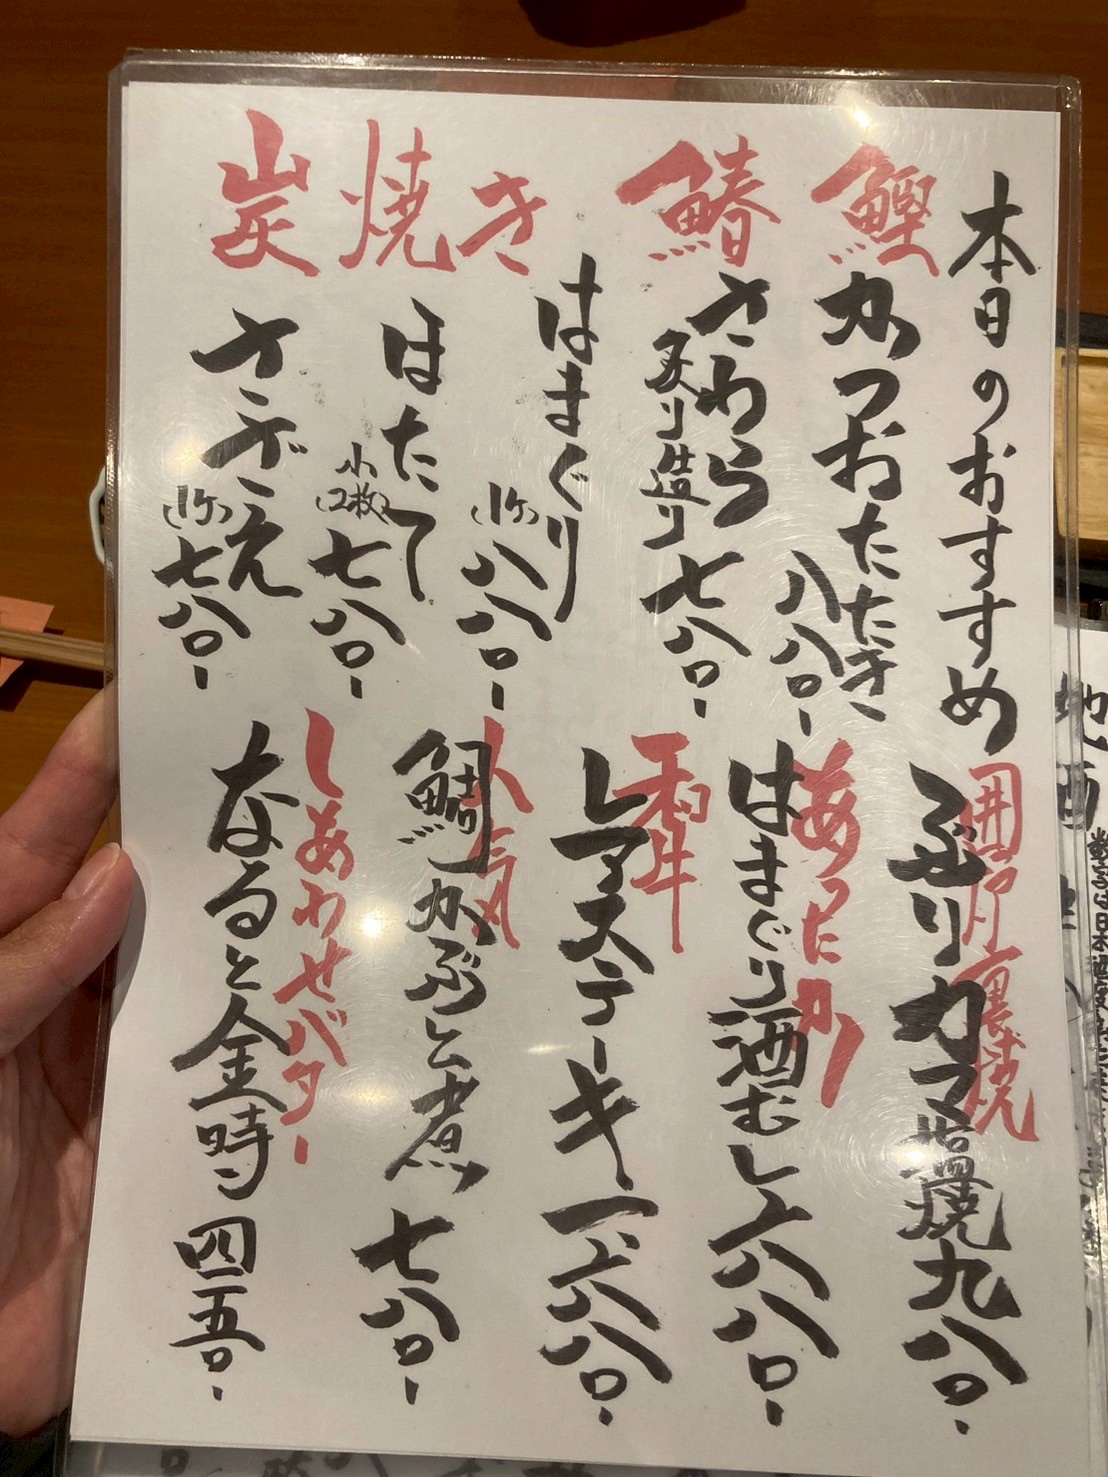 本日のおすすめ
鰹
かつおたたき
八八〇-
鰆
さわら
炙り造り
七八〇-
炭焼き
はまぐり
(1ケ)
八八〇-
ほたて
小(2枚)
七八〇-
サザエ
(1ケ)
七八〇-
囲炉裏焼
ぶりカマ塩焼 九八〇-
あったか
はまぐり酒むし 六八〇-
和牛
レアステーキ 一、六八〇-
人気
鯛かぶと煮 七八〇-
しあわせバター
なると金時 四五〇-
地酒
数ある日本酒